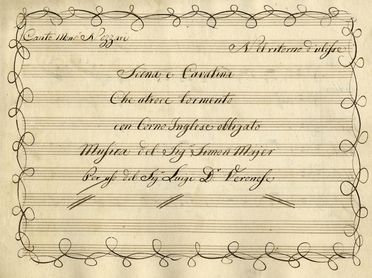 Cante Mons Nozzari
Nel ritorno d'ulisse
Scena, e Cavatina
Che atroce tormento
con Corno Inglese obligato
Musica del Sig.r Simon Majer
Per uso del Sig.r Luigi D.r Veronese